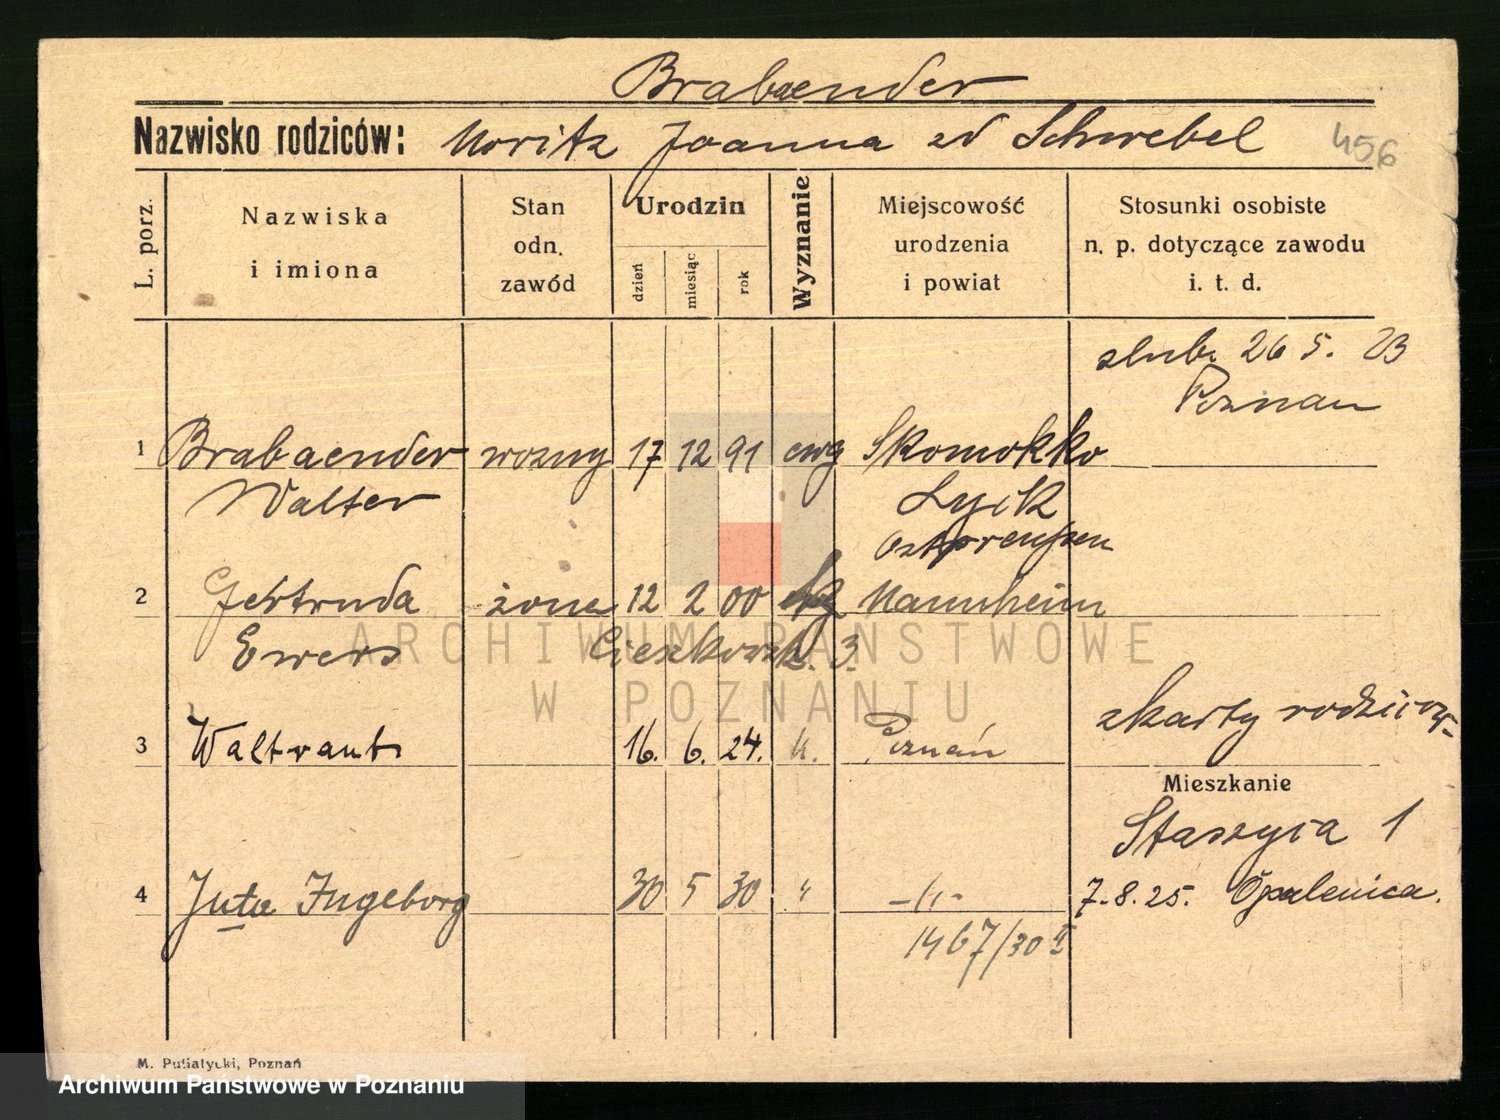 Brabaender
Nazwisko rodziców: Moritz Joanna zd Schwebel 456
L. porz.
Nazwiska
i imiona
Stan
odn.
zawód
Urodzin
dzień
miesiąc
rok
Wyznanie
Miejscowość
urodzenia
i powiat
Stosunki osobiste
n. p. dotyczące zawodu
i. t. d.
slub. 26 5. 23
Poznan
1 Brabaender wozny 17 12 91 ewg Skomokko
Walter Lyck
Ostpreußen
2 Gertruda żona 12 2 00 Mannheim
Ewers Cieszkowsk. 3.
ARCHIWUM PAŃSTWOWE
W POZNANIU
z karty rodzicow
3 Waltraut 16. 6. 24. „. Poznań
Mieszkanie
Staszyca 1
4 Juta Ingeborg 30 5 30 " -"- 7.8.25. Opalenica.
1467/30 II
M. Putiatycki, Poznań
Archiwum Państwowe w Poznaniu